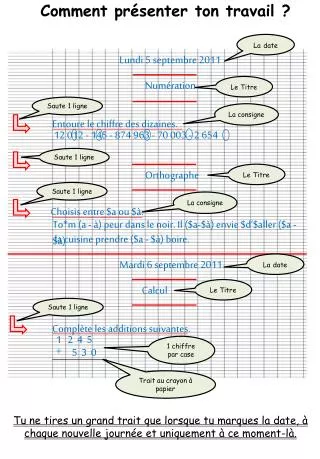 Comment présenter ton travail ?
La date
Lundi 5 septembre 2011
Numération
Le Titre
Saute 1 ligne
La consigne
Entoure le chiffre des dizaines.
12 012 - 145 - 874 963 - 70 003 - 2 654
Saute 1 ligne
Orthographe
Le Titre
Saute 1 ligne
La consigne
Choisis entre $a ou $à.
To*m (a - à) peur dans le noir. Il ($a-$à) envie $d'$aller ($a -
$à) cuisine prendre ($a - $à) boire.
Mardi 6 septembre 2011
La date
Calcul
Le Titre
Saute 1 ligne
Complète les additions suivantes.
1 2 4 5
+ 5 3 0
1 chiffre
par case
Trait au crayon à
papier
Tu ne tires un grand trait que lorsque tu marques la date, à
chaque nouvelle journée et uniquement à ce moment-là.